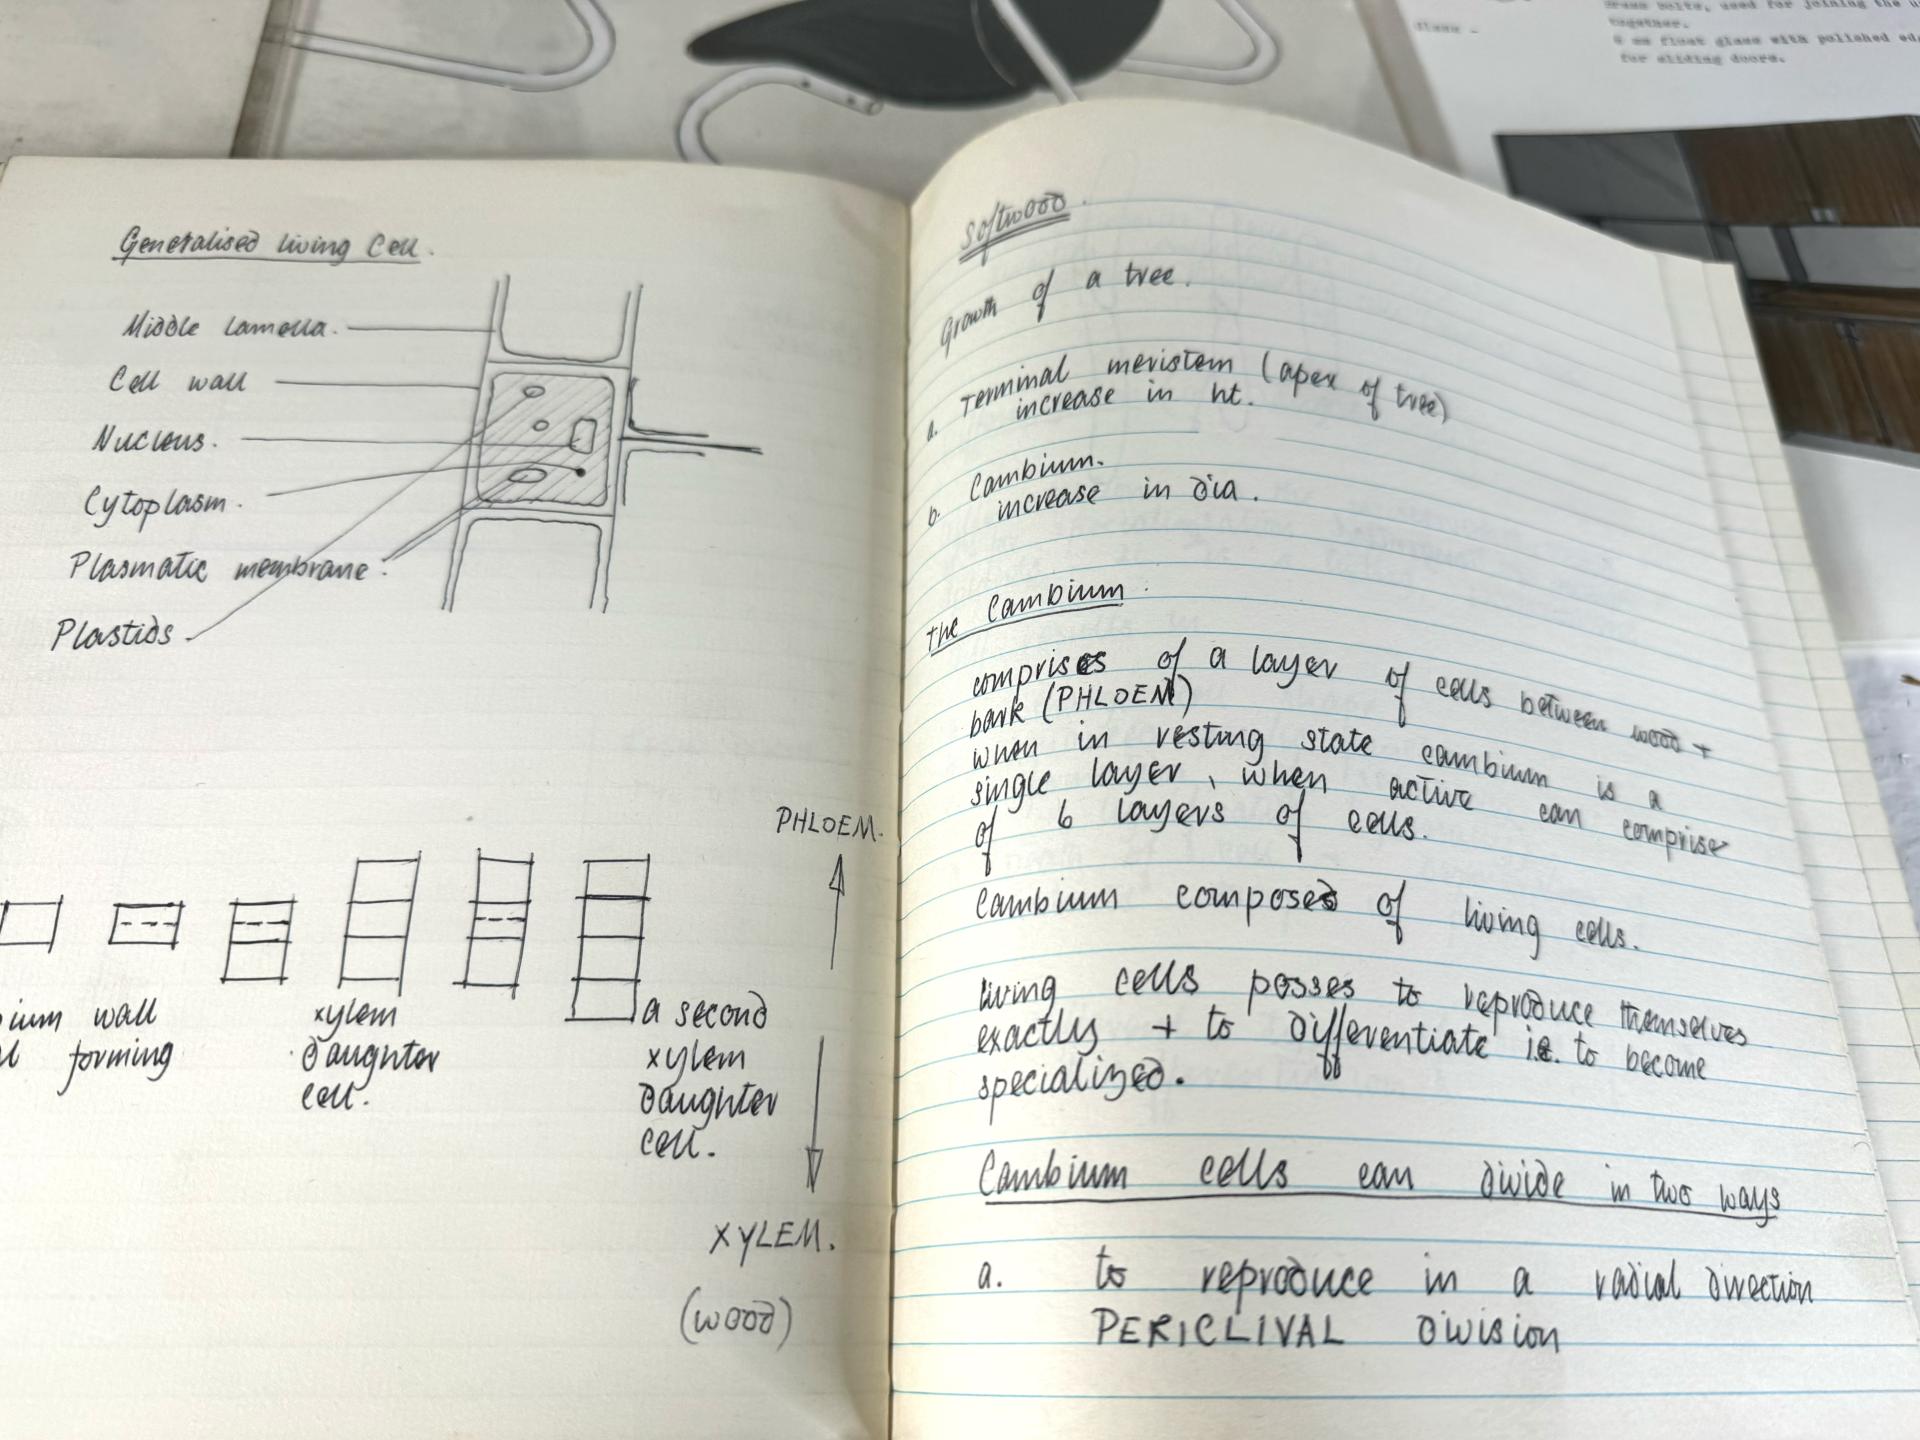 Brass bolts, used for joining the
together.
Glass -
6 mm float glass with polished
for sliding doors.
Generalised living Cell.
Middle lamella.
Cell wall
Nucleus.
Cytoplasm.
Plasmatic membrane.
Plastids
PHLOEM.
ium wall
forming
xylem
daughter
cell.
a second
xylem
daughter
cell.
XYLEM.
(wood)
Softwood.
Growth of a tree.
a. Terminal meristem (apex of tree)
increase in ht.
b. Cambium.
increase in dia.
The Cambium.
comprises of a layer of cells between wood +
bark (PHLOEM)
when in resting state cambium is a
single layer, when active can comprise
of 6 layers of cells.
Cambium composed of living cells.
living cells posses to reproduce themselves
exactly + to differentiate i.e. to become
specialized.
Cambium cells can divide in two ways
a. to reproduce in a radial direction
PERICLIVAL division